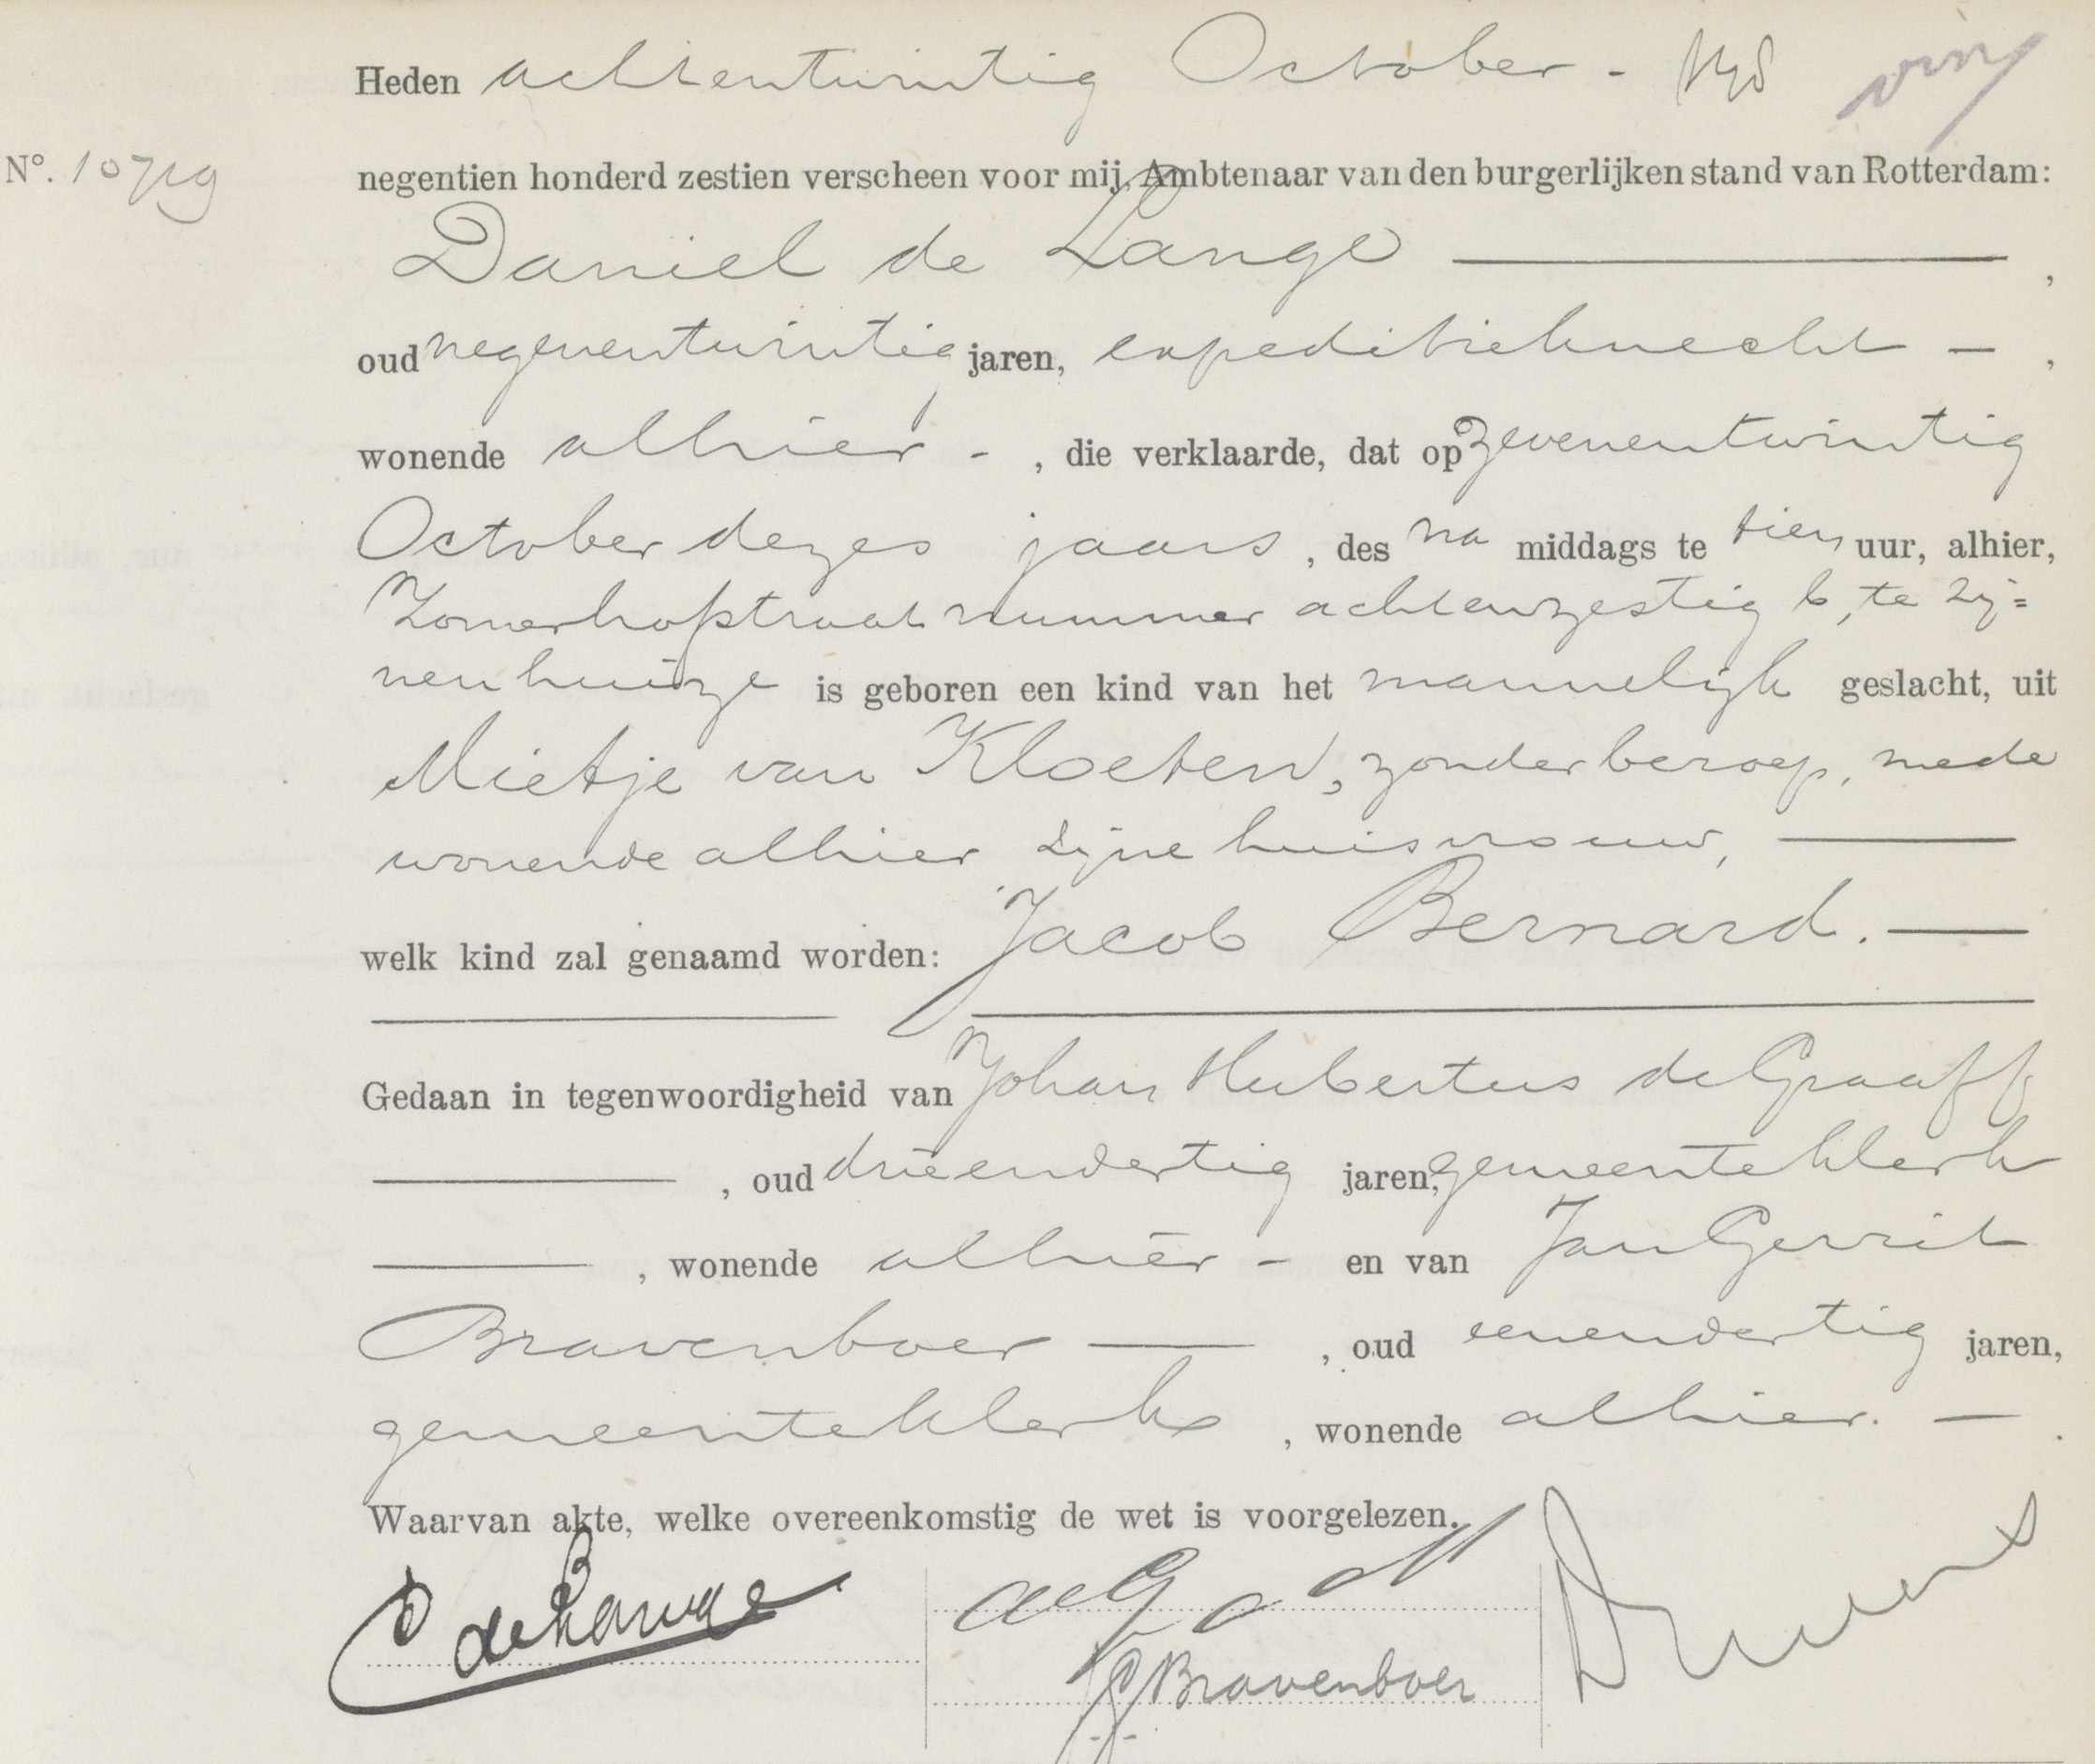 Heden achtentwintig October -
No. 10719
negentien honderd zestien verscheen voor mij, Ambtenaar van den burgerlijken stand van Rotterdam:
Daniel de Lange ,
oud negenentwintig jaren, expeditieknecht - ,
wonende alhier - , die verklaarde, dat op zevenentwintig
October dezes jaars , des na middags te tien uur, alhier,
Zomerhofstraat nummer achtenzestig b, te zij=
nen huize is geboren een kind van het mannelijk geslacht, uit
Mietje van Kloeten, zonder beroep, mede
wonende alhier zijne huisvrouw,
welk kind zal genaamd worden: Jacob Bernard.
Gedaan in tegenwoordigheid van Johan Hubertus de Graaff
, oud drieendertig jaren, gemeenteklerk
, wonende alhier - en van Jan Gerrit
Bravenboer , oud eenendertig jaren,
gemeenteklerk , wonende alhier. .
Waarvan akte, welke overeenkomstig de wet is voorgelezen.
D de Lange
de Graaff
JG Bravenboer